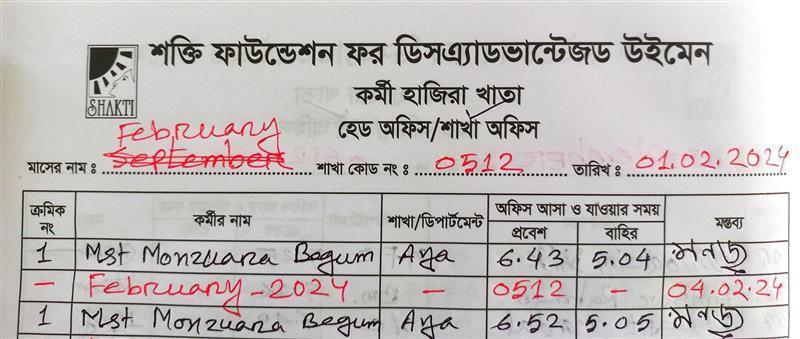 শক্তি ফাউন্ডেশন ফর ডিসএ্যাডভান্টেজড উইমেন
SHAKTI
কর্মী হাজিরা খাতা
হেড অফিস/শাখা অফিস
February
মাসের নাম : September শাখা কোড নং : 0512 তারিখ : 01.02.2024
ক্রমিক নং কর্মীর নাম শাখা/ডিপার্টমেন্ট অফিস আসা ও যাওয়ার সময় মন্তব্য
প্রবেশ বাহির
1 Mst Monzuara Begum Aya 6.43 5.04 মনজু
- February-2024 - 0512 - 04.02.24
1 Mst Monzuara Begum Aya 6.52 5.05 মনজু